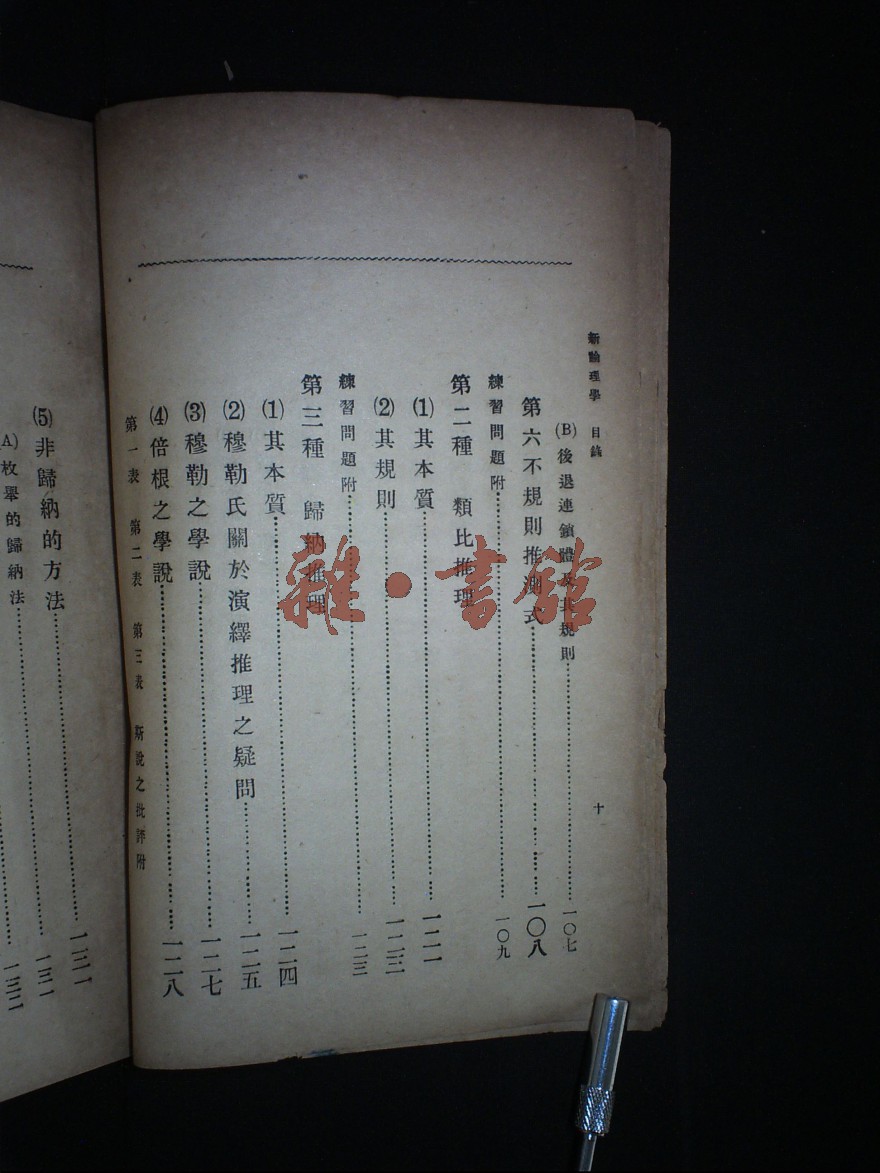 新論理學　目錄
十
(B)後退連鎖體及其規則……一〇七
第六不規則推測式……一〇八
練習問題附……一〇九
第二種　類比推理
(1)其本質……一二一
(2)其規則……一二二
練習問題附……一二三
第三種　歸納推理
(1)其本質……一二四
(2)穆勒氏關於演繹推理之疑問……一二五
(3)穆勒之學說……一二七
(4)倍根之學說……一二八
第一表　第二表　第三表　斯說之批評附
(5)非歸納的方法……一三一
(A)枚舉的歸納法……一三一
……一三二
雜·書館